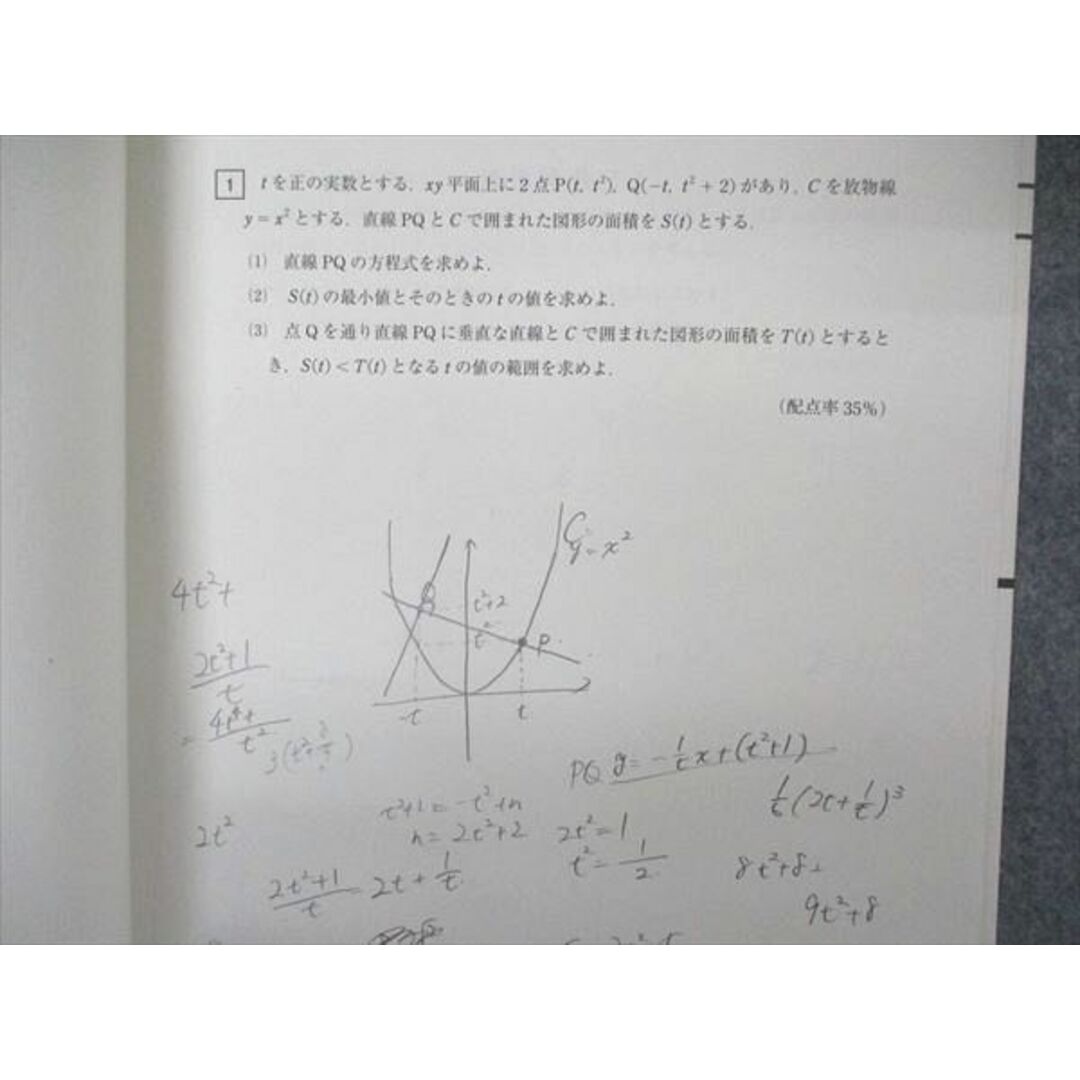 1 tを正の実数とする. xy平面上に2点P(t, t²), Q(−t, t²+2)があり, Cを放物線
y=x²とする. 直線PQとCで囲まれた図形の面積をS(t)とする.
(1) 直線PQの方程式を求めよ.
(2) S(t)の最小値とそのときのtの値を求めよ.
(3) 点Qを通り直線PQに垂直な直線とCで囲まれた図形の面積をT(t)とすると
き, S(t)<T(t)となるtの値の範囲を求めよ.
(配点率35%)
C
y=x²
4t²+
Q
t²+2
t²
P
2t²+1/t
-t
t
PQ y=-1/t x+(t²+1)
1/t(2t+1/t)³
t²+1=-t²+n
n=2t²+2
2t²=1
t²=1/2
2t²
8t²+8
2t²+1/t=2t+1/t
9t²+8